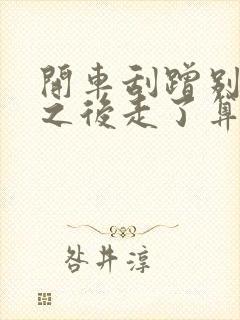 開車刮蹭别
之後走了算
咎井淳